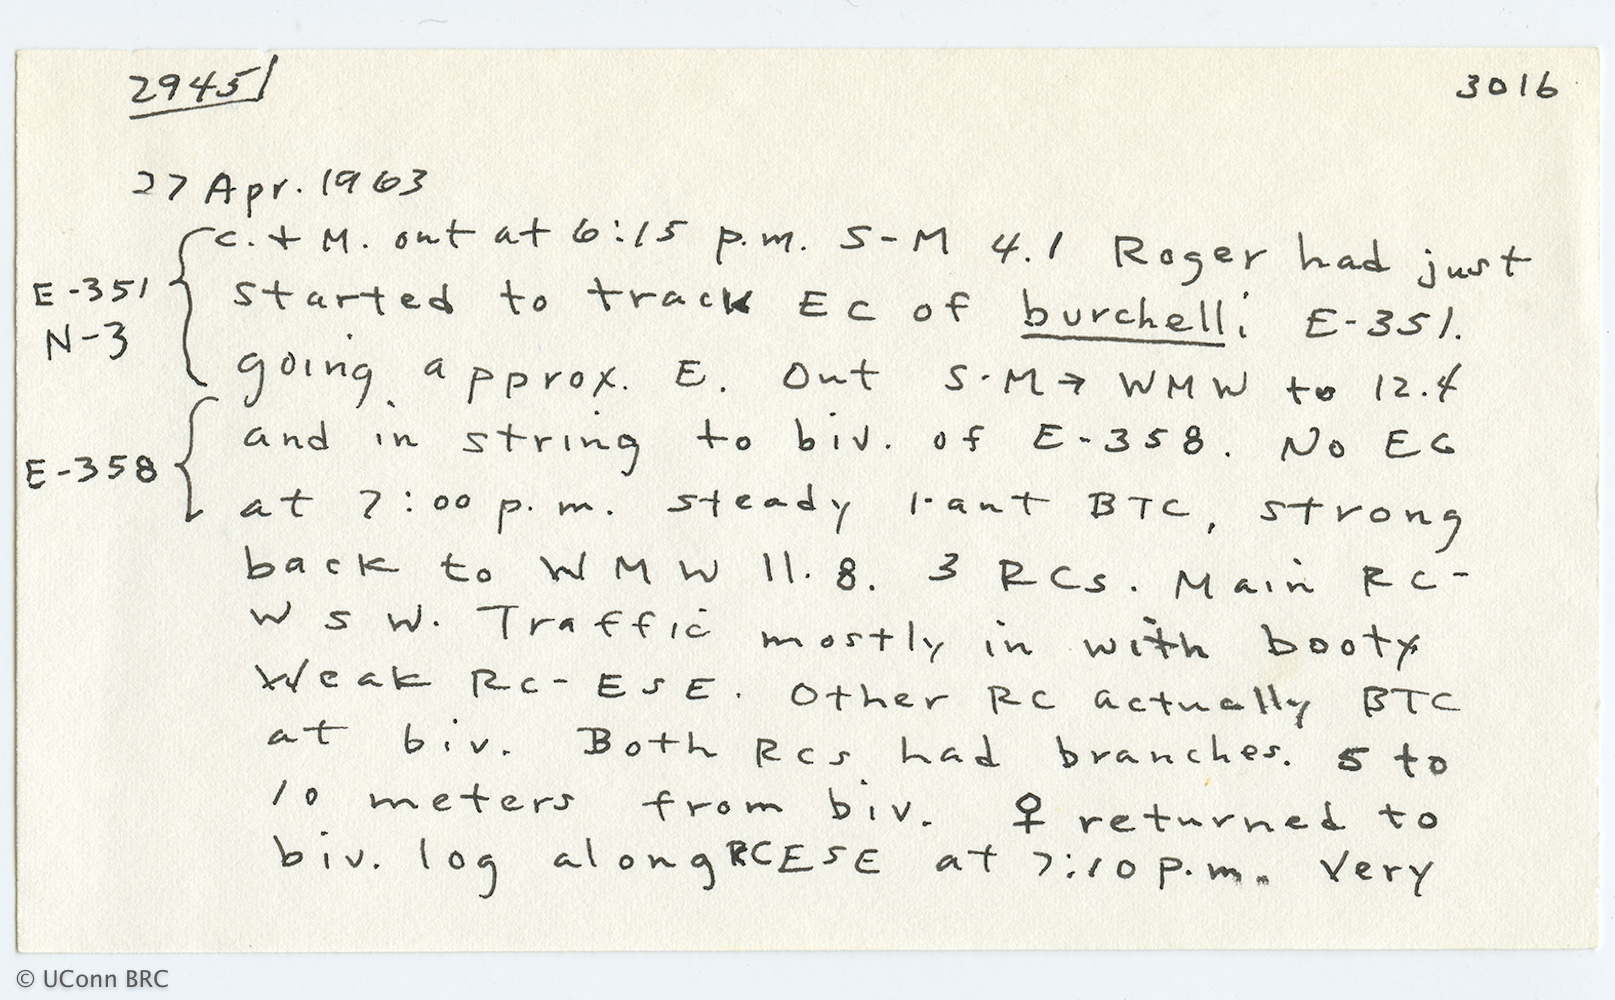 2945 3016
27 Apr. 1963
C. + M. out at 6:15 p.m. S-M 4.1 Roger had just
E-351 started to track EC of burchelli E-351.
N-3 going approx. E. Out S-M → WMW to 12.4
and in string to biv. of E-358. No EC
E-358 at 7:00 p.m. steady 1-ant BTC, strong
back to WMW 11.8. 3 RCs. Main RC-
WSW. Traffic mostly in with booty
Weak RC-ESE. Other RC actually BTC
at biv. Both RCs had branches. 5 to
10 meters from biv. ♀ returned to
biv. log along RCESE at 7:10 p.m. Very
© UConn BRC